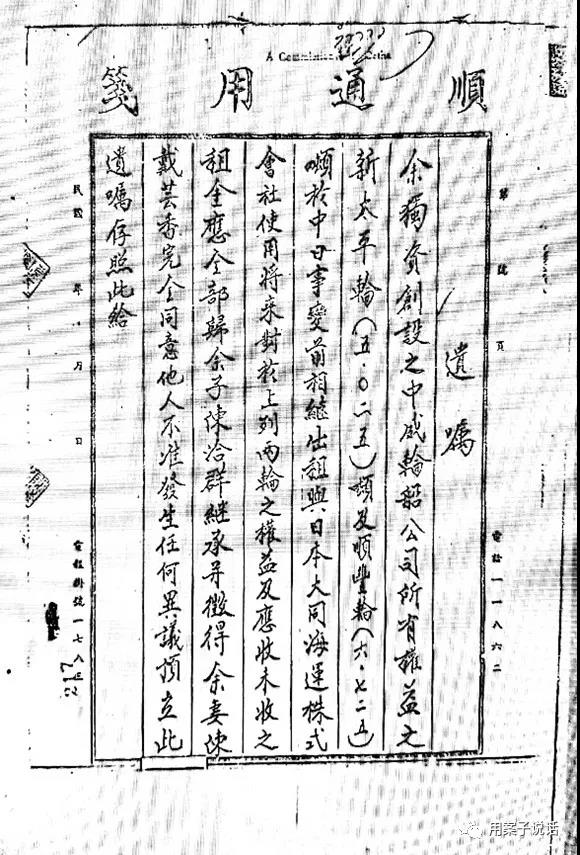 順通用箋
第 號 頁
電話一一八六二
遺嘱
余獨資創設之中威輪船公司所有權益之
新太平輪(五·〇二五)噸及順豐輪(六·七二五)
噸於中日事變前相繼出租與日本大同海運株式
會社使用將來對於上列兩輪之權益及應收未收之
租金應全部歸余子陳洽群継承并徵得余妻陳
戴芸香完全同意他人不准發生任何異議預立此
遺嘱存照此給
民國 年 月 日
電報掛號一七八三
217
用案子说话